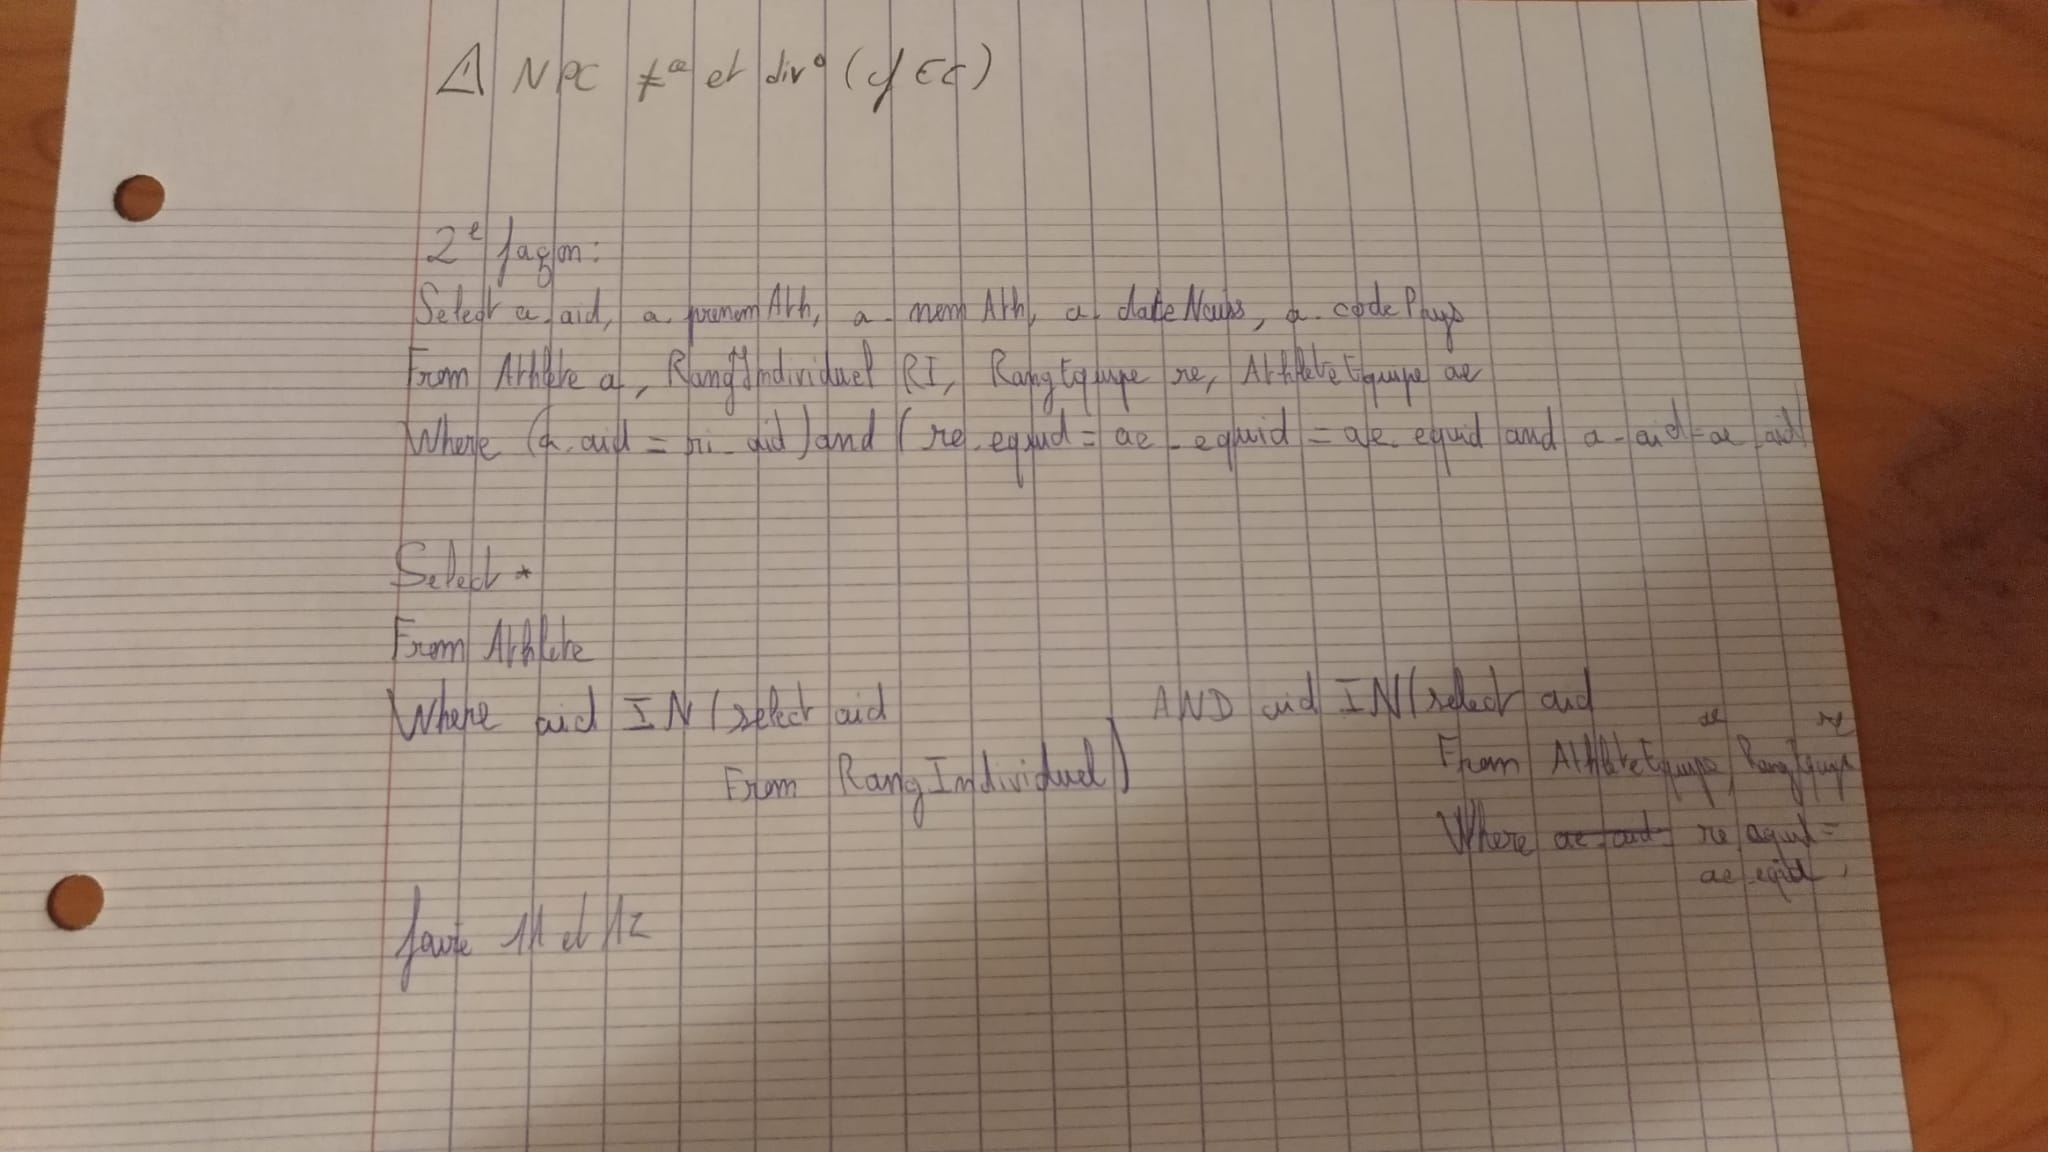 ⚠ NPC ≠ce et div° (cf EC)
2e façon:
Select a.aid, a.prenomAth, a.nomAth, a.dateNaiss, a.codePays
From Athlete a, RangIndividuel RI, RangEquipe re, AthleteEquipe ae
Where (a.aid = ri.aid) and (re.equid = ae.equid = ae.equid and a.aid = ae.aid)
Select *
From Athlete
Where aid IN (select aid
From RangIndividuel)
AND aid IN (select aid
ae re
From AthleteEquipe, RangEquipe
Where ae.aid re.equid =
ae.eqid
faire 11 et 12